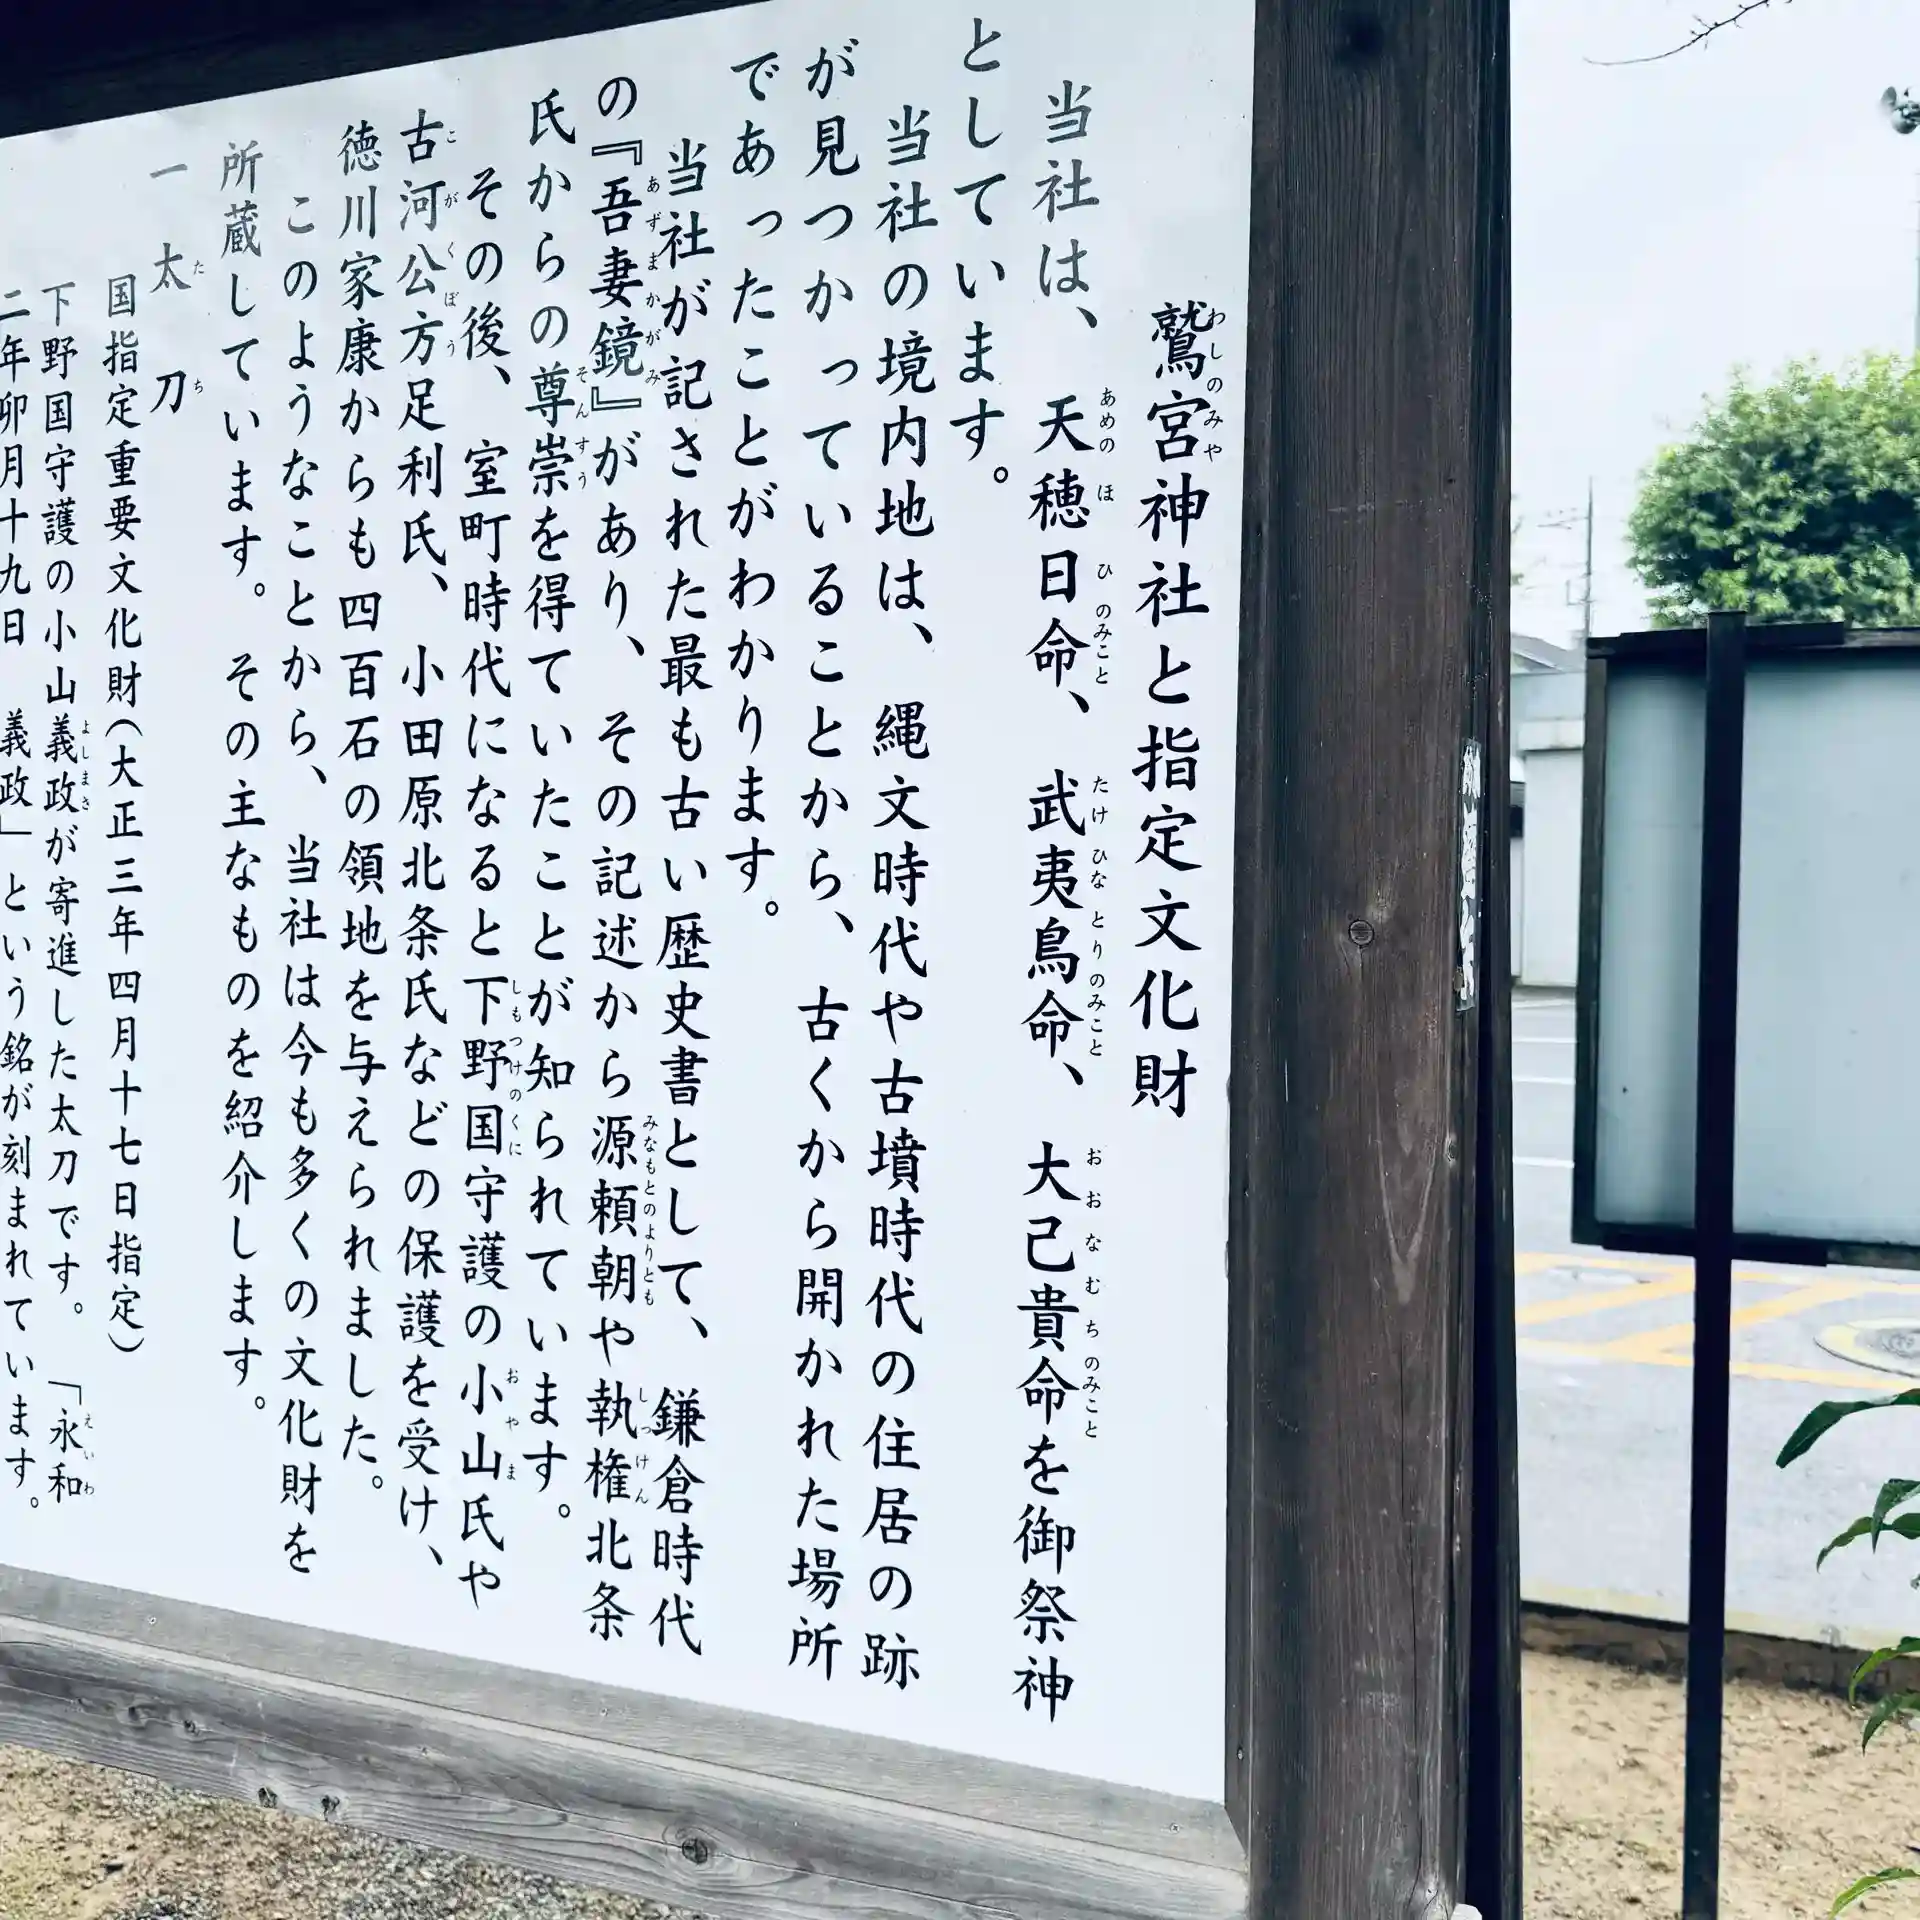 鷲宮神社と指定文化財
当社は、天穂日命、武夷鳥命、大己貴命を御祭神
としています。
当社の境内地は、縄文時代や古墳時代の住居の跡
が見つかっていることから、古くから開かれた場所
であったことがわかります。
当社が記された最も古い歴史書として、鎌倉時代
の『吾妻鏡』があり、その記述から源頼朝や執権北条
氏からの尊崇を得ていたことが知られています。
その後、室町時代になると下野国守護の小山氏や
古河公方足利氏、小田原北条氏などの保護を受け、
徳川家康からも四百石の領地を与えられました。
このようなことから、当社は今も多くの文化財を
所蔵しています。その主なものを紹介します。
一 太刀
国指定重要文化財(大正三年四月十七日指定)
下野国守護の小山義政が寄進した太刀です。「永和
二年卯月十九日 義政」という銘が刻まれています。